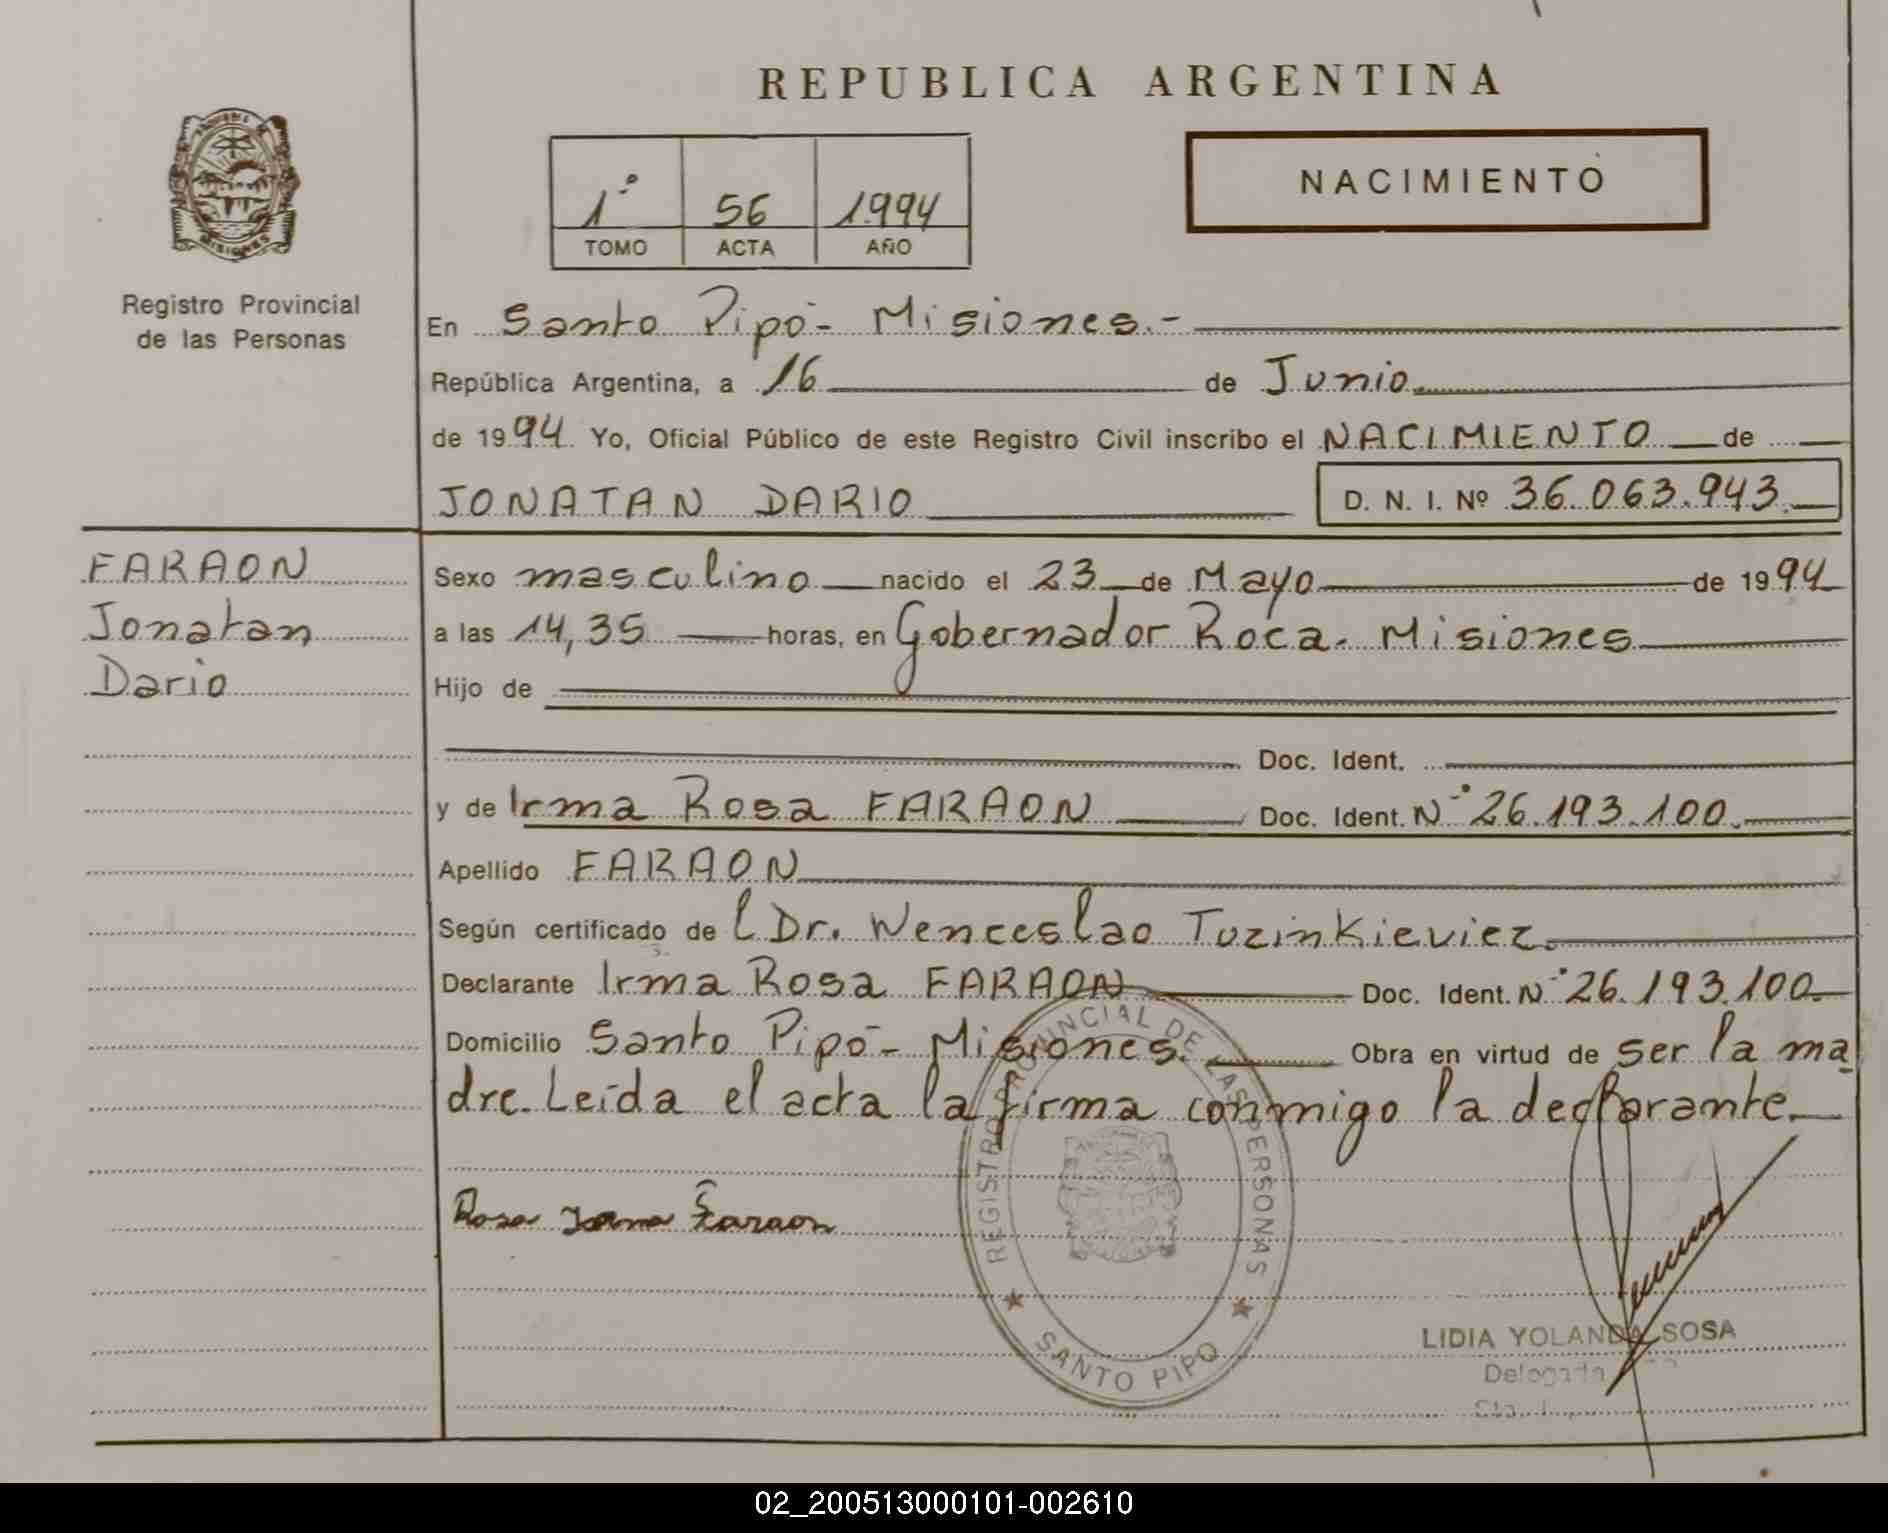 REPUBLICA ARGENTINA
PROVINCIA DE
MISIONES
Registro Provincial
de las Personas
1º 56 1994
TOMO ACTA AÑO
NACIMIENTO
En Santo Pipó- Misiones.-
República Argentina, a 16 de Junio
de 1994 Yo, Oficial Público de este Registro Civil inscribo el NACIMIENTO de
JONATAN DARIO D. N. I. Nº 36.063.943.
FARAON
Jonatan
Dario
Sexo masculino nacido el 23 de Mayo de 1994
a las 14,35 horas, en Gobernador Roca. Misiones
Hijo de
Doc. Ident.
y de Irma Rosa FARAON Doc. Ident. Nº 26.193.100.
Apellido FARAON
Según certificado de l Dr. Wenceslao Tuzinkieviez.
Declarante Irma Rosa FARAON Doc. Ident. Nº 26.193.100.
Domicilio Santo Pipó- Misiones. Obra en virtud de ser la ma
dre. Leída el acta la firma conmigo la declarante.
Rosa Irma Faraon
REGISTRO PROVINCIAL DE LAS PERSONAS
SANTO PIPO
LIDIA YOLANDA SOSA
Delegada
02_200513000101-002610